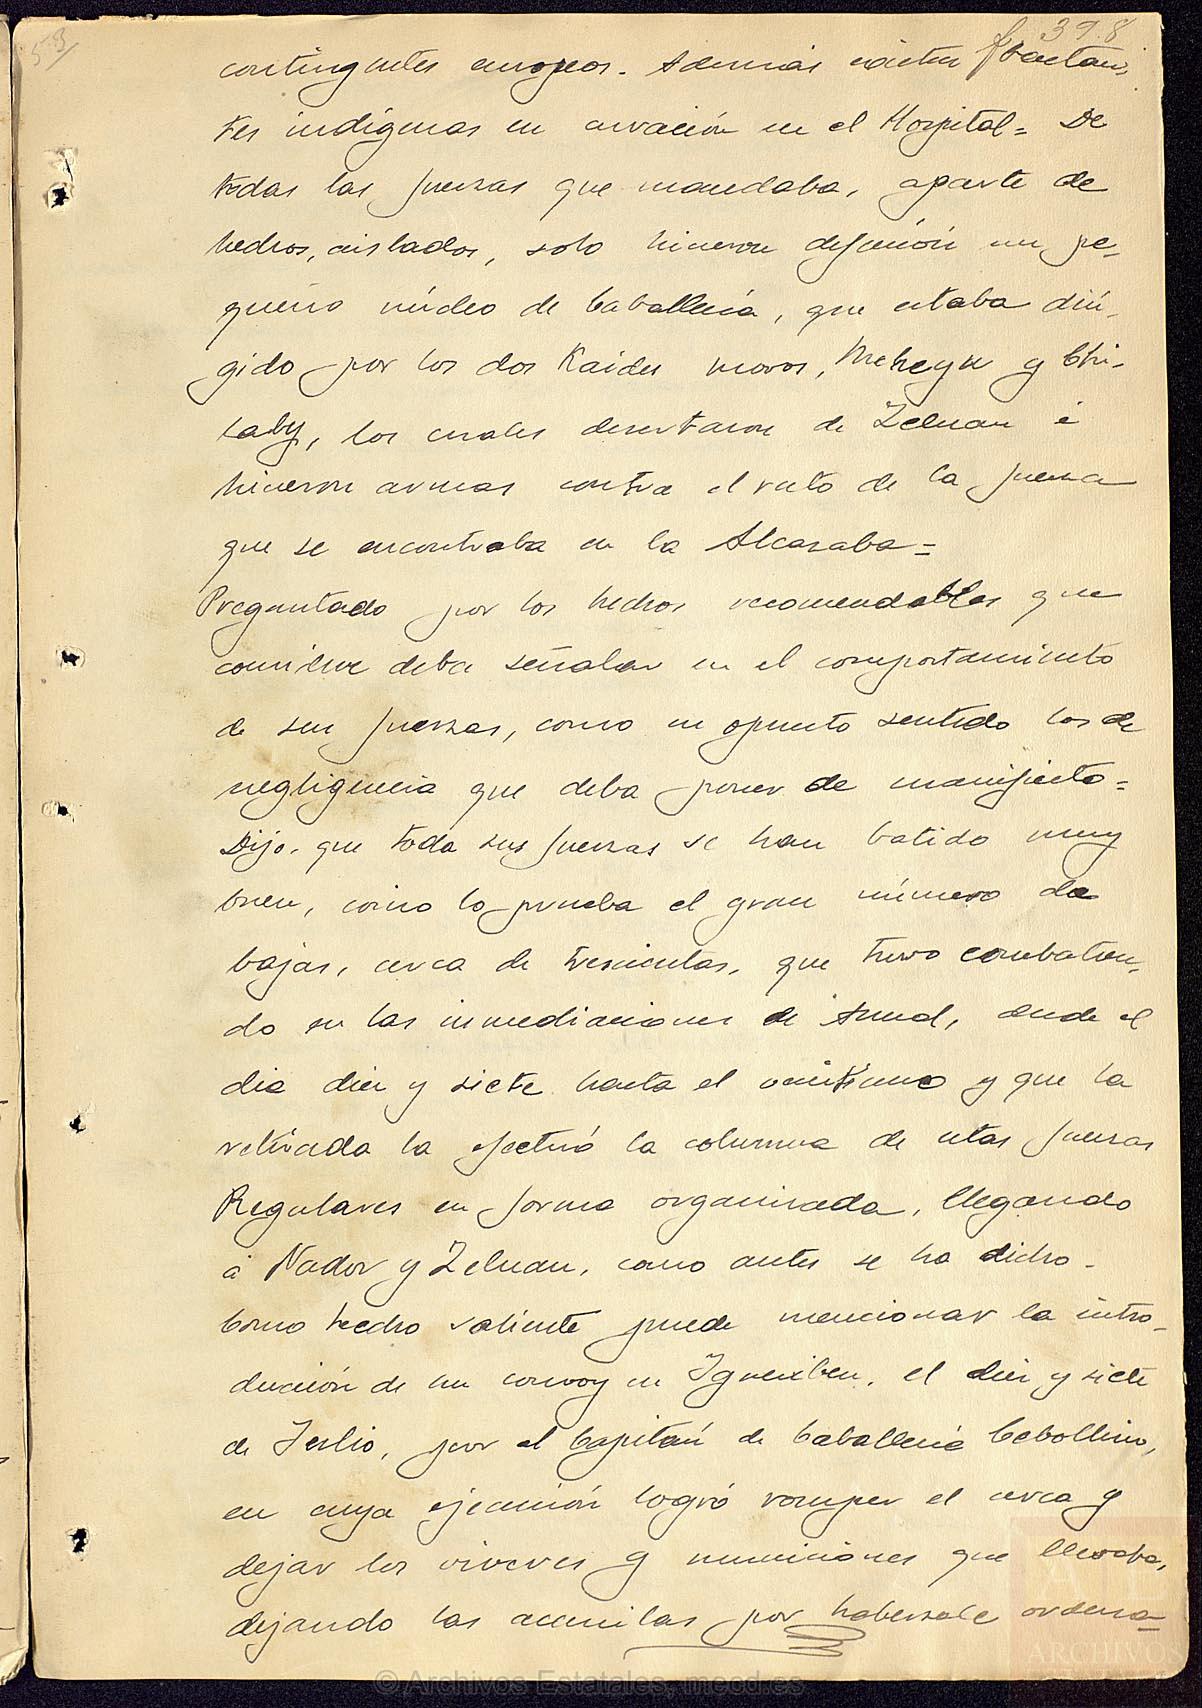 53
398
contingentes europeos. Además existen bastan-
tes indígenas en curación en el Hospital = De
todas las fuerzas que mandaba, aparte de
hechos, aislados, solo hicieron defección un pe-
queño núcleo de Caballería, que estaba diri-
gido por los dos Kaides moros, Meheyn y Chi-
laby, los cuales desertaron de Zeluan é
hicieron armas contra el resto de la fuerza
que se encontraba en la Alcazaba =
Preguntado por los hechos recomendables que
considere deba señalar en el comportamiento
de sus fuerzas, como en opuesto sentido los de
negligencia que deba poner de manifiesto =
Dijo. que toda sus fuerzas se han batido muy
bien, como lo prueba el gran número de
bajas, cerca de trescientas, que tuvo combatien-
do en las inmediaciones de Annual, desde el
dia diez y siete hasta el veintiuno y que la
retirada la efectuó la columna de estas fuerzas
Regulares en forma organizada, llegando
á Nador y Zeluan, como antes se ha dicho.
Como hecho saliente puede mencionar la intro-
ducción de un convoy en Igueriben, el diez y siete
de Julio, por el Capitán de Caballería Cebollino,
en cuya ejecución logró romper el cerco y
dejar los víveres y municiones que llevaba,
dejando las acemilas por habersele ordena-
© Archivos Estatales, mecd.es
ARCHIVOS